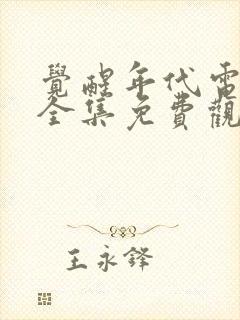 覺醒年代電
全集免費觀
王永鋒